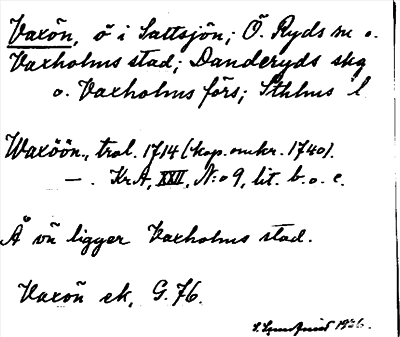 Vaxön, ö i Saltsjön; Ö. Ryds sn o.
Vaxholms stad; Danderyds skg
o. Vaxholms förs; Sthlms l
Waxöön, trol. 1714 (kop. omkr. 1740).
—. KrA, XXII, N:o 9, lit. b. o. c.
Å ön ligger Vaxholms stad.
Vaxön ek, G. 76.
1936.